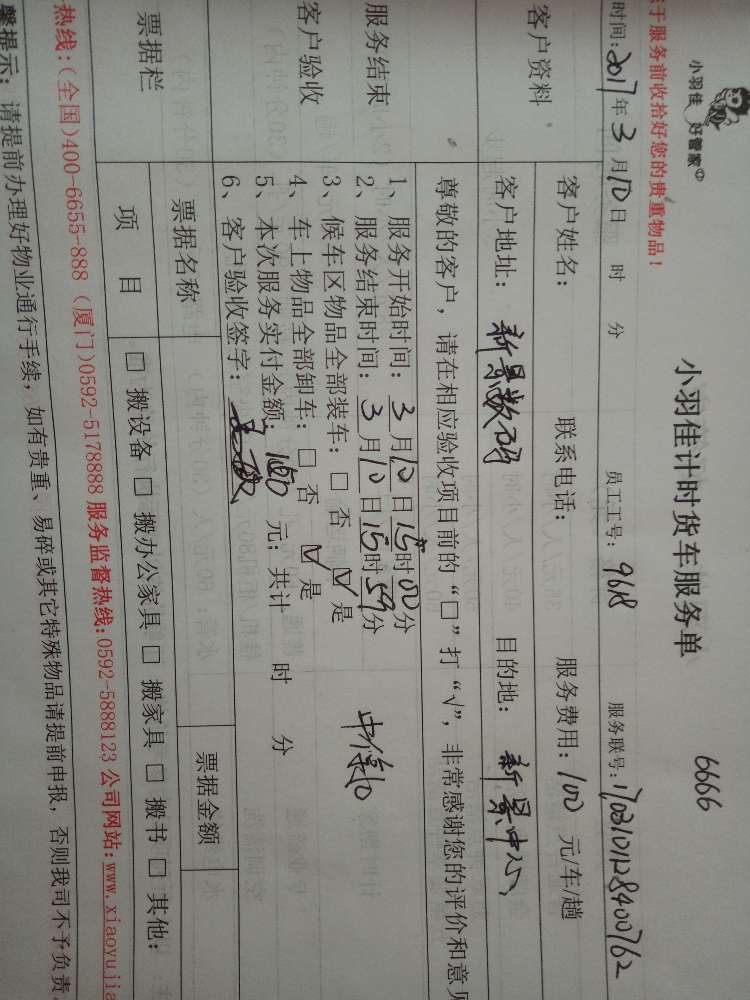 小羽佳 好管家
小羽佳计时货车服务单
6666
于服务前收拾好您的贵重物品！
时间：2017年3月10日 时 分 员工工号：9618 服务联号：
客户资料
客户姓名： 联系电话： 服务费用：100元/车/趟
客户地址：新景数码 目的地：新景中心
尊敬的客户，请在相应验收项目前的“□”打“√”，非常感谢您的评价和意见
服务结束
客户验收
1、服务开始时间：3月10日15时00分
2、服务结束时间：3月10日15时59分
3、候车区物品全部装车：□否 ☑是
4、车上物品全部卸车：□否 ☑是
5、本次服务实付金额：元；共计 时 分
6、客户验收签字：
票据栏
票据名称 票据金额
项目 □搬设备 □搬办公家具 □搬家具 □搬书 □其他：
热线：(全国)400-6655-888 (厦门)0592-5178888 服务监督热线：0592-5888123 公司网站：www.xiaoyujia
馨提示：请提前办理好物业通行手续，如有贵重、易碎或其它特殊物品请提前申报，否则我司不予负责